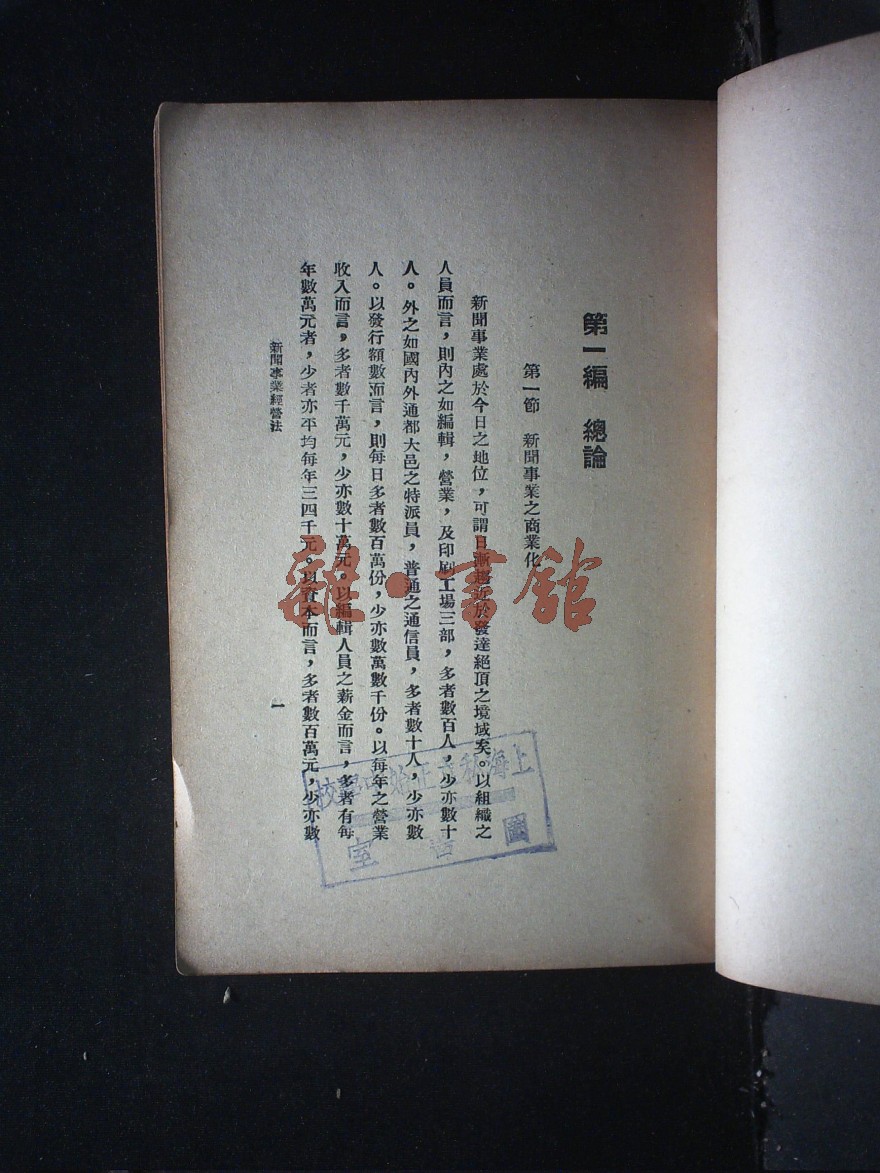 第一編　總論
第一節　新聞事業之商業化
新聞事業處於今日之地位，可謂日漸趨近於發達絕頂之境域矣。以組織之
人員而言，則內之如編輯，營業，及印刷工場三部，多者數百人，少亦數十
人。外之如國內外通都大邑之特派員，普通之通信員，多者數十人，少亦數
人。以發行額數而言，則每日多者數百萬份，少亦數萬數千份。以每年之營業
收入而言，多者數千萬元，少亦數十萬元。以編輯人員之薪金而言，多者有每
年數萬元者，少者亦平均每年三四千元。以資本而言，多者數百萬元，少亦數
新聞事業經營法
一
雜·書館
上海私立正始中學校
圖書室